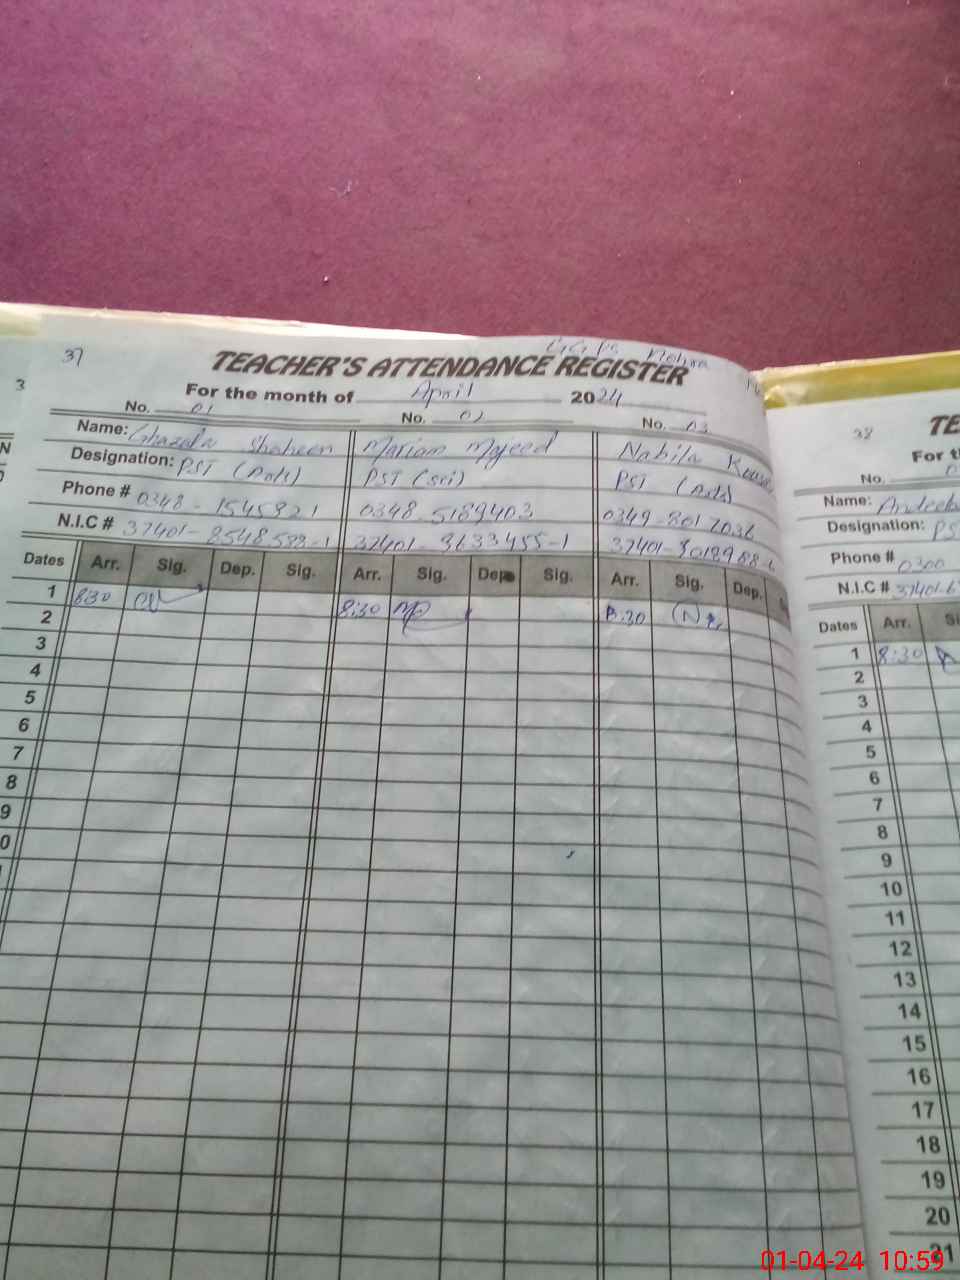 37
TEACHER'S ATTENDANCE REGISTER
For the month of April 2024
No. 01 No. 02 No. 03
Name: Ghazala Shaheen Mariam Majeed Nabila
Designation: PST PST (sci) PST
Phone # 0348-1545821 0348-5189403 0349-8017036
N.I.C # 37401-8548583-1 37401-3633455-1
Dates Arr. Sig. Dep. Sig. Arr. Sig. Dep. Sig. Arr. Sig. Dep.
1 8:30 8:30 8:30
2
3
4
5
6
7
8
9
38
TE
For t
No.
Name:
Designation: PS
Phone # 0300
N.I.C # 37401-6
Dates Arr. Si
1 8:30
2
3
4
5
6
7
8
9
10
11
12
13
14
15
16
17
18
19
20
21
01-04-24 10:59